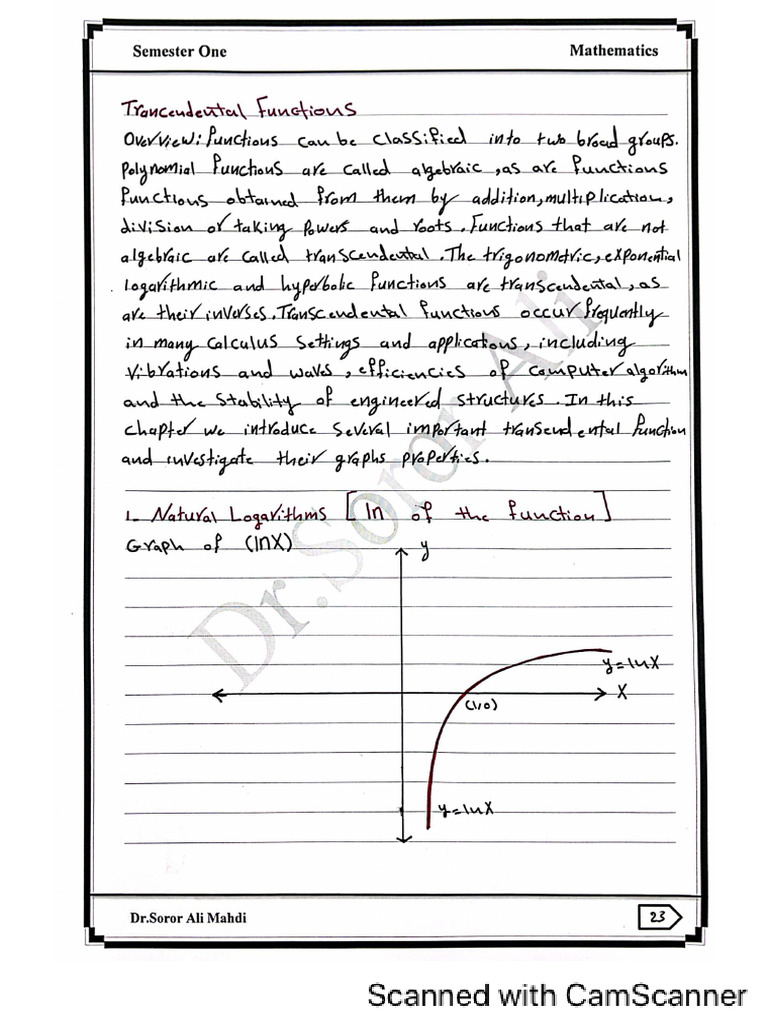 Semester One Mathematics
Trancendental Functions
Overview: functions can be classified into two broad groups.
Polynomial functions are called algebraic, as are functions
functions obtained from them by addition, multiplication,
division or taking powers and roots. Functions that are not
algebraic are called transcendental. The trigonometric, exponential
logarithmic and hyperbolic functions are transcendental, as
are their inverses. Transcendental functions occur frequently
in many calculus settings and applications, including
vibrations and waves, efficiencies of computer algorithm
and the stability of engineered structures. In this
chapter we introduce several important transendental function
and investigate their graphs properties.
1. Natural Logarithms [ln of the function]
Graph of (lnX)
y
y=lnX
X
(1,0)
y=lnX
Dr.Soror Ali
Dr.Soror Ali Mahdi 23
Scanned with CamScanner